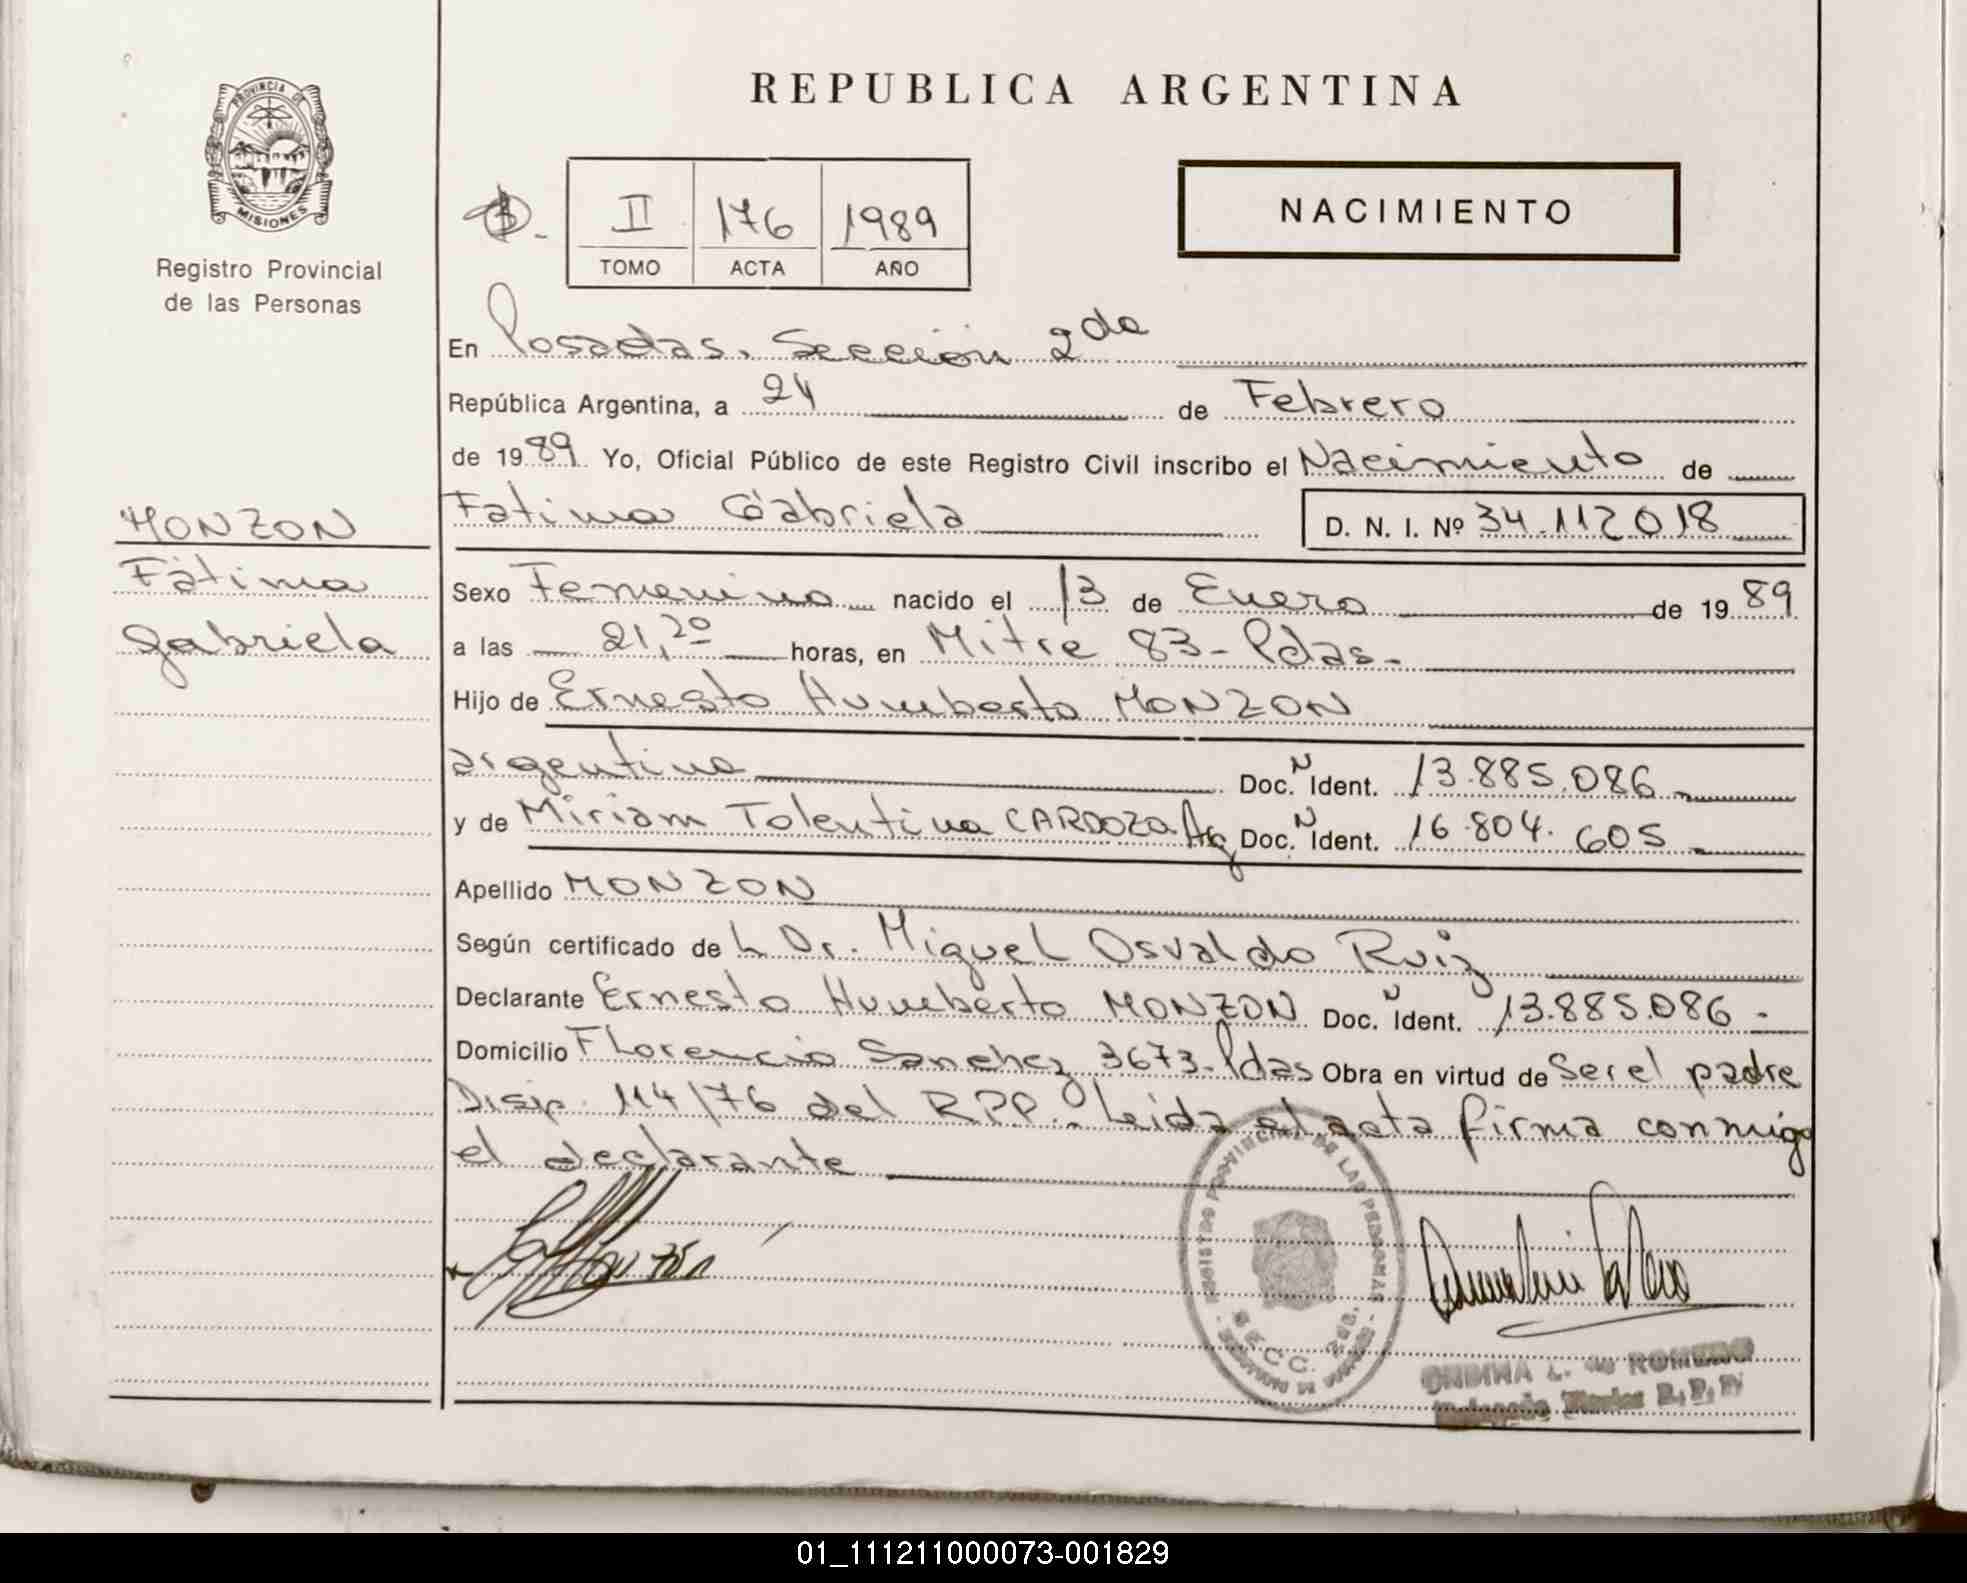 PROVINCIA DE
MISIONES
Registro Provincial
de las Personas
MONZON
Fátima
Gabriela
REPUBLICA ARGENTINA
II 176 1989
TOMO ACTA AÑO
NACIMIENTO
En Posadas. Sección 2da
República Argentina, a 24 de Febrero
de 1989 Yo, Oficial Público de este Registro Civil inscribo el Nacimiento de
Fatima Gabriela D. N. I. Nº 34.112018
Sexo Femenino nacido el 13 de Enero de 1989
a las 21,20 horas, en Mitre 83-Pdas.
Hijo de Ernesto Humberto MONZON
argentino Doc. N Ident. 13.885.086
y de Miriam Tolentina CARDOZO Arg Doc. N Ident. 16.804.605
Apellido MONZON
Según certificado de L Dr. Miguel Osvaldo Ruiz
Declarante Ernesto Humberto MONZON Doc. N Ident. 13.885.086-
Domicilio Florencio Sanchez 3673-Pdas Obra en virtud de Ser el padre
Disp. 114/76 del RPP.- Leida el acta firma conmigo
el declarante
REGISTRO PROVINCIAL DE LAS PERSONAS
SECC. 2da.
ONDINA L. de ROMERO
01_111211000073-001829